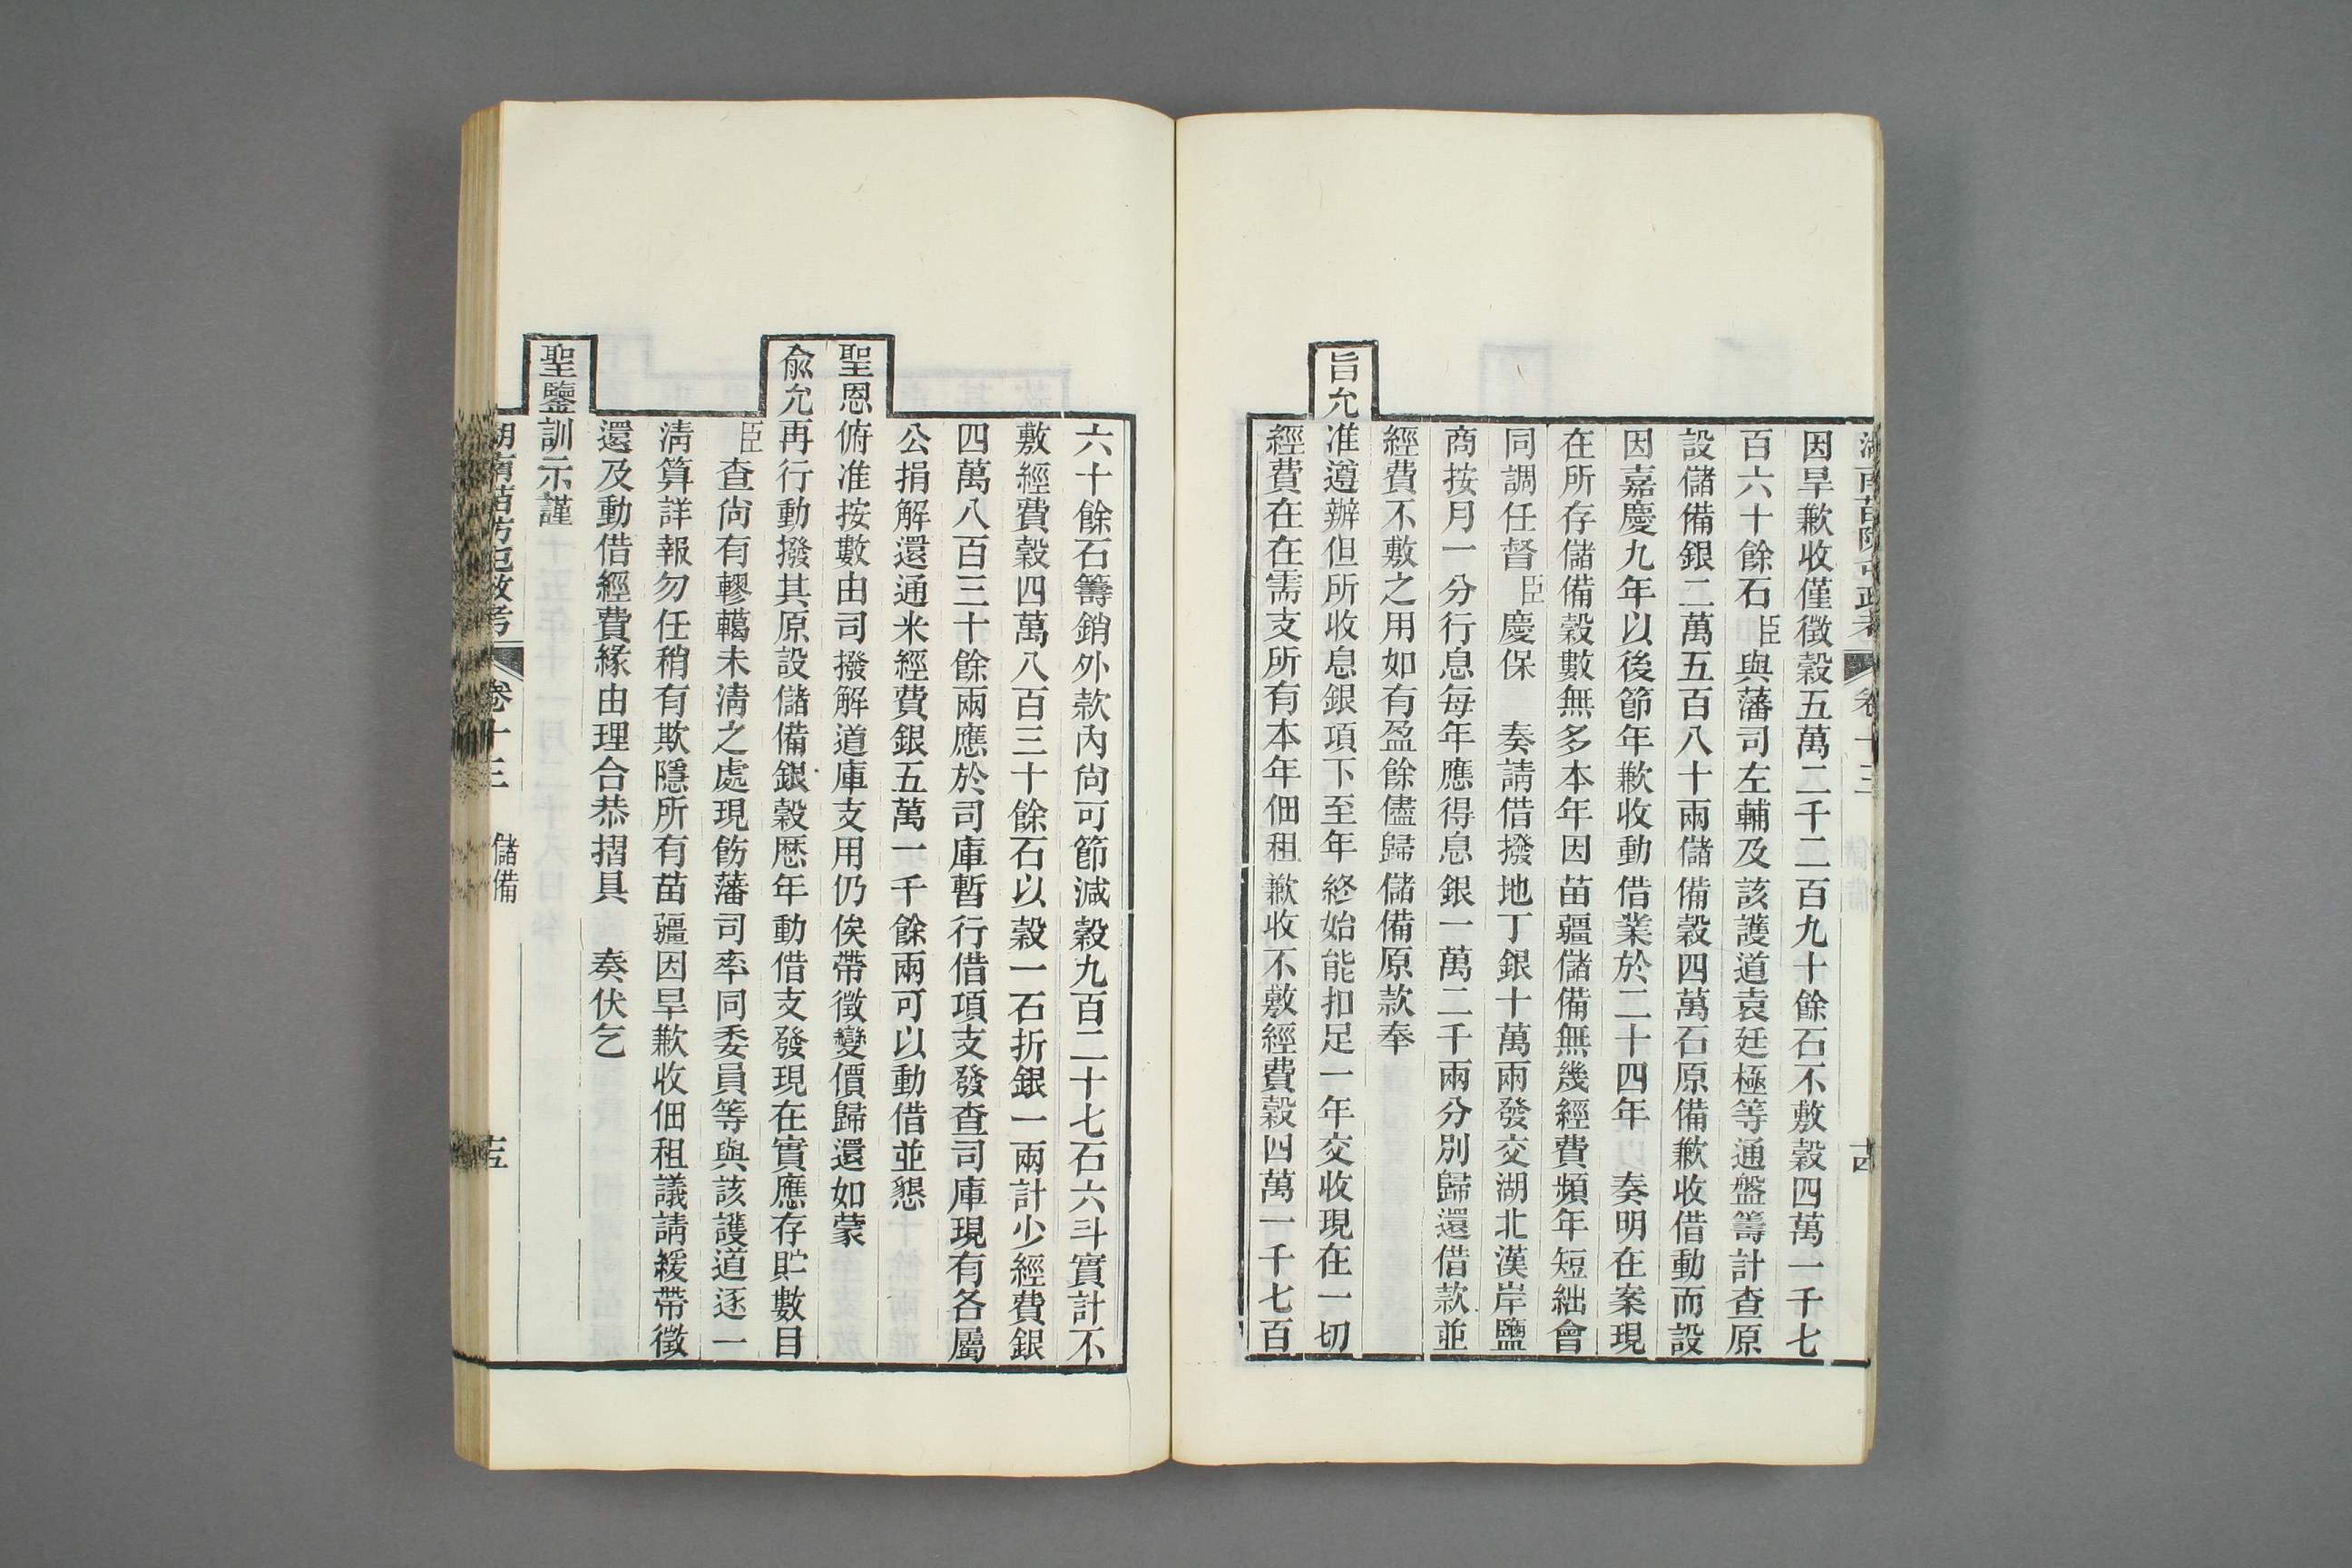 湖南苗防屯政考 卷十三 儲備 十四
因旱歉收僅徵穀五萬二千二百九十餘石不敷穀四萬一千七
百六十餘石臣與藩司左輔及該護道袁廷極等通盤籌計查原
設儲備銀二萬五百八十兩儲備穀四萬石原備歉收借動而設
因嘉慶九年以後節年歉收動借業於二十四年 奏明在案現
在所存儲備穀數無多本年因苗疆儲備無幾經費頻年短絀會
同調任督臣慶保 奏請借撥地丁銀十萬兩發交湖北漢岸鹽
商按月一分行息每年應得息銀一萬二千兩分別歸還借款並
經費不敷之用如有盈餘儘歸儲備原款奉
旨允准遵辦但所收息銀項下至年終始能扣足一年交收現在一切
經費在在需支所有本年佃租歉收不敷經費穀四萬一千七百
六十餘石籌銷外款內尚可節減穀九百二十七石六斗實計不
敷經費穀四萬八百三十餘石以穀一石折銀一兩計少經費銀
四萬八百三十餘兩應於司庫暫行借項支發查司庫現有各屬
公捐解還通米經費銀五萬一千餘兩可以動借並懇
聖恩俯准按數由司撥解道庫支用仍俟帶徵變價歸還如蒙
俞允再行動撥其原設儲備銀穀歷年動借支發現在實應存貯數目
臣查尚有轇轕未清之處現飭藩司率同委員等與該護道逐一
清算詳報勿任稍有欺隱所有苗疆因旱歉收佃租議請緩帶徵
還及動借經費緣由理合恭摺具 奏伏乞
聖鑒訓示謹
湖南苗防屯政考 卷十三 儲備 十五